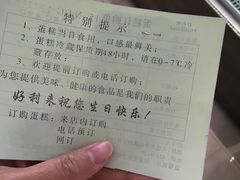 特别提示
1、蛋糕当日食用，口感最鲜美；
2、蛋糕冷藏保质期48小时，请在0-7℃冷
藏存放；
3、欢迎提前订购或电话订购；
为您提供美味、健康的食品是我们的职责
好利来祝您生日快乐！
订购蛋糕：来店内订购
电话预订
网订